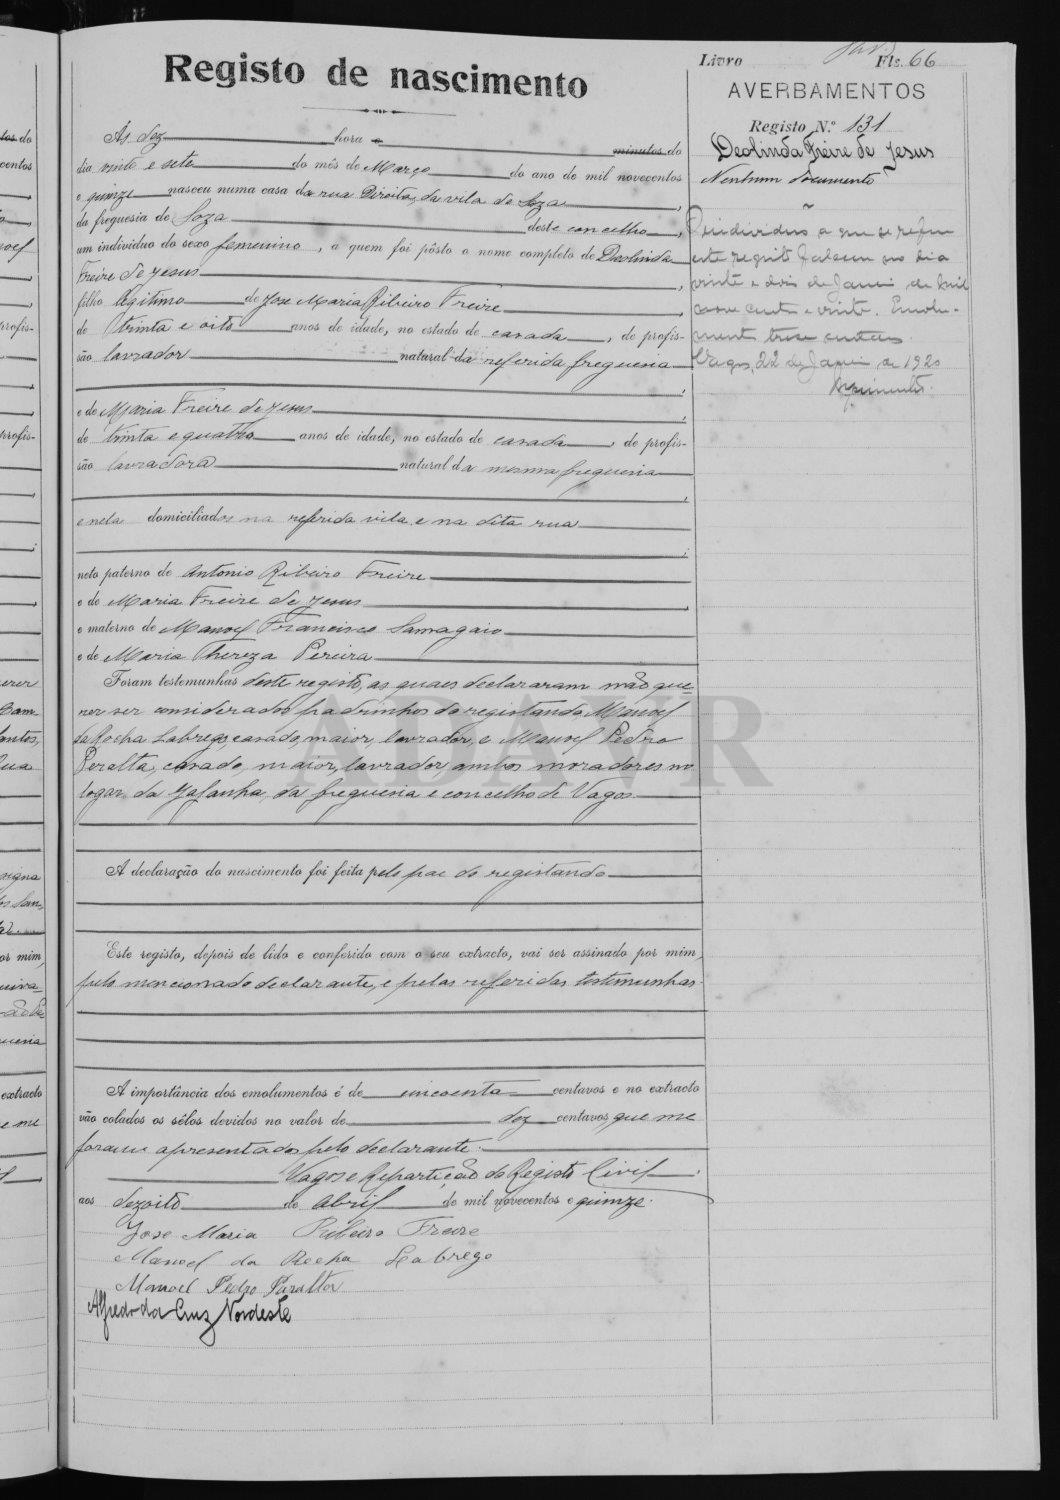 Registo de nascimento
Ás dez hora e minutos do
dia vinte e sete do mês de Março do ano de mil novecentos
e quinze nasceu numa casa da rua Direita, da vila de Soza,
da freguesia de Soza deste concelho,
um individuo do sexo femenino, a quem foi pôsto o nome completo de Deolinda
Freire de Jesus,
filho legitimo de Jose Maria Ribeiro Freire
de trinta e oito anos de idade, no estado de casado, de profis-
são lavrador natural da referida freguesia
e de Maria Freire de Jesus
de trinta e quatro anos de idade, no estado de casada, de profis-
são lavradora natural da mesma freguesia
e nela domiciliados na referida vila e na dita rua
neto paterno de Antonio Ribeiro Freire
e de Maria Freire de Jesus,
e materno de Manoel Francisco Samagaio
e de Maria Thereza Pereira
Foram testemunhas deste registo, as quaes declararam não que-
rer ser considerados padrinhos do registando, Manoel
da Rocha Labrego, casado, maior, lavrador, e Manoel Pedro
Peralta, casado, maior, lavrador ambos moradores no
logar da Gafanha, da freguesia e concelho de Vagos.
A declaração do nascimento foi feita pelo pae do registando
Este registo, depois de lido e conferido com o seu extracto, vai ser assinado por mim,
pelo mencionado declarante, e pelas referidas testemunhas.
A importância dos emolumentos é de cincoenta centavos e no extracto
vão colados os sêlos devidos no valor de dez centavos, que me
foram apresentados pelo declarante.
Vagos e Repartição do Registo Civil,
aos dezoito de Abril de mil novecentos e quinze.
Jose Maria Ribeiro Freire
Manoel da Rocha Labrego
Manoel Pedro Paralta
Alfredo da Cruz Nordeste
Livro Fls. 66
AVERBAMENTOS
Registo N.º 131
Deolinda Freire de Jesus
Nenhum documento
O individuo a que se refere
este registo faleceu no dia
vinte e dois de Janeiro de mil
nove centos e vinte. Emolu-
mento trese centavos.
Vagos, 22 de Janeiro de 1920
ADAVR